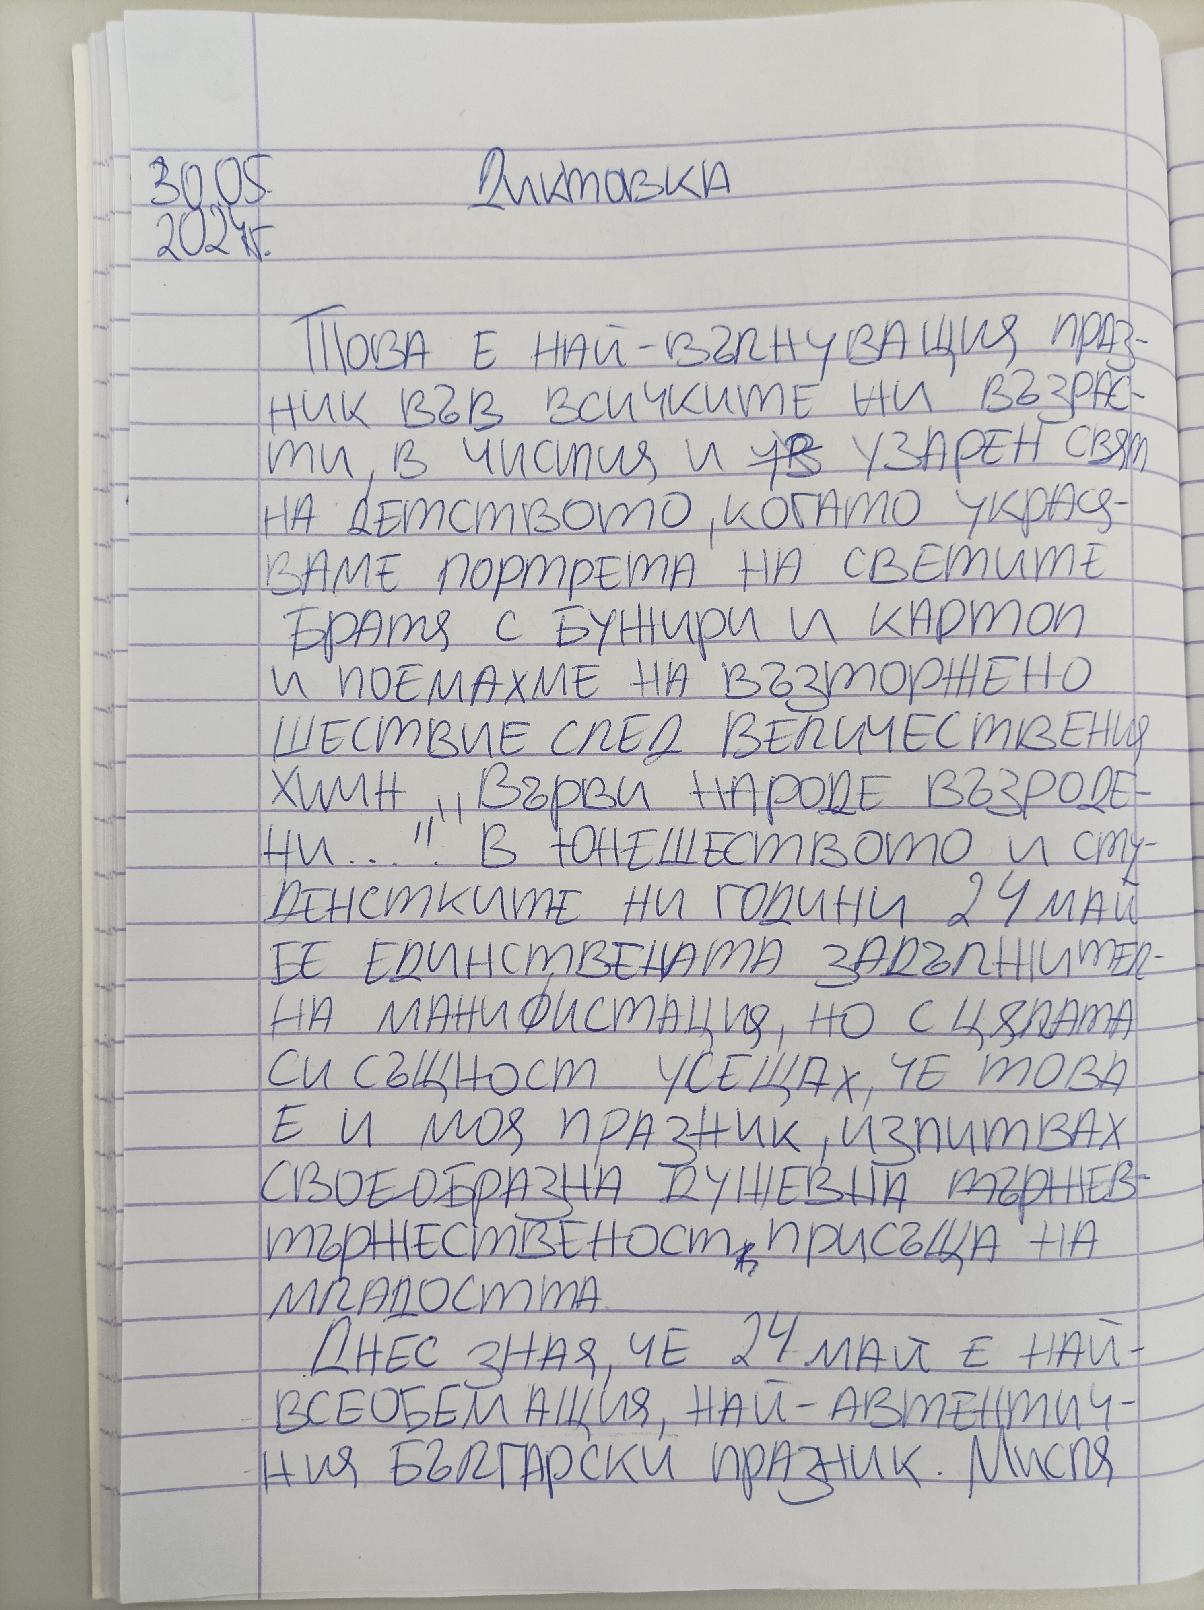 30.05. Диктовка
2024г.
Това е най-вълнуващия праз-
ник във всичките ни възрас-
ти, в чистия и узарен свят
на детството, когато украся-
ваме портрета на светите
братя с бужири и картоп
и поемахме на възторжено
шествие след величествения
химн ,,Върви народе възроде-
ни...". В юнешеството и сту-
денстките ни години 24 май
бе единствената задължител-
на манифистация, но с цялата
си същност усещах, че това
е и моя празник, изпитвах
своеобразна душевна тържев-
тържественост, присъща на
младостта
Днес зная, че 24 май е най-
всеобемащия, най-автентич-
ния български празник. Мисля